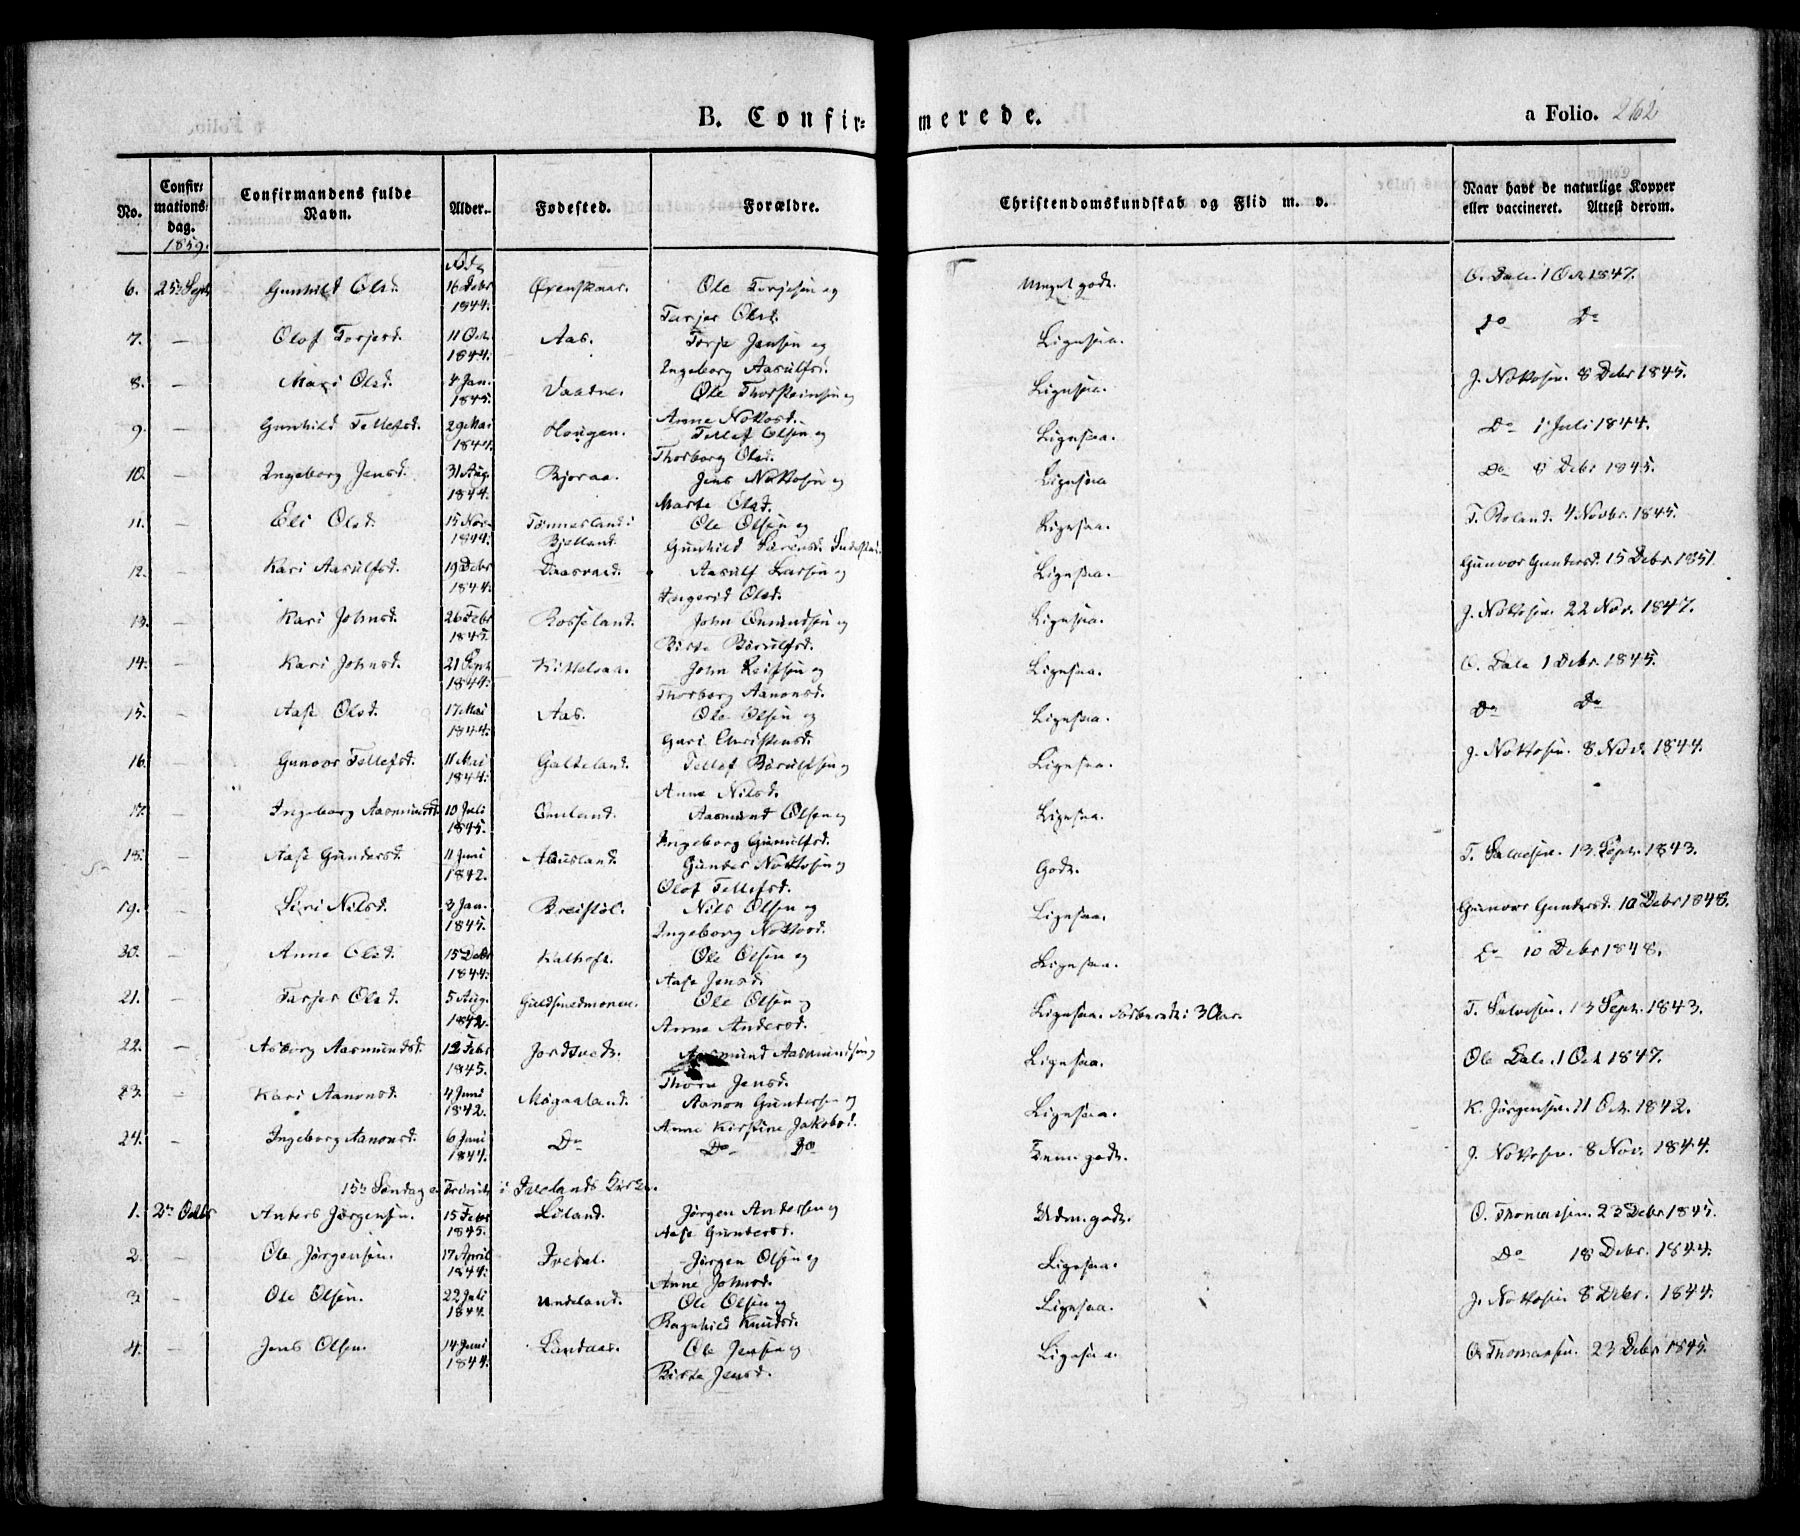 B. Confir= merede.
a Folio. 262
No.
Confir= mations= dag.
Confirmandens fulde Navn.
Alder.
Fødested.
Forældre.
Christendomskundskab og Flid m. v.
Naar havt de naturlige Kopper eller vaccineret. Attest derom.
1859.
6. 25 Sept Gunhild Olsd. 16 Debr 1844. Ørenskaar. Ole Terjesen og Meget godt. O. Dale. 1 Oct. 1847.
Tarjer Olsd.
7. — Olof Torjesd. 11 Oct. 1844. Aas. Torje Jensen og Ligesaa. Do Do
Ingeborg Aasulfsd.
8. — Mari Olsd. 4 Jan. 1845. Vaadne. Ole Thorsteinsen og Ligesaa. J. Nottosen. 8 Debr 1845.
Anne Nottosd.
9. — Gunhild Tellefsd. 29 Mai 1844. Hougen. Tellef Olsen og Ligesaa. Do 1 Juli 1844.
Thorborg Olsd.
10. — Ingeborg Jensd. 31 Aug. 1844. Bjoraa. Jens Nottosen og Ligesaa Do 8 Debr 1845.
Marte Olsd.
11. — Eli Olsd. 15 Nov. 1844. Tønnesland i Bjelland. Ole Olsen og Ligesaa. T. Roland. 4 Novbr. 1845.
Gunhild Sørensd.
12. — Kari Aasulfsd. 19 Debr 1844. Daasvand. Aasulf Larsen og Ligesaa. Gunvor Gundersd. 15 Debr. 1851.
Ingerid Olsd.
13. — Kari Johnsd. 26 Febr 1845. Rosseland. John Omundsen og Ligesaa. J. Nottosen. 22 Nov. 1847.
Birte Børulfsd.
14. — Kari Johnsd. 21 Sept 1844. Kittelsaa. John Leifsen og Ligesaa. O. Dale 1 Debr. 1845.
Thorborg Aanonsd.
15. — Aase Olsd. 17 Mai 1844. Aas. Ole Olsen og Ligesaa. Do Do
Guri Christensd.
16. — Gunvor Tellefsd. 11 Mai 1844. Galteland. Tellef Børulfsen og Ligesaa. J. Nottosen. 8 Nov. 1844.
Anne Nilsd.
17. — Ingeborg Aasmundsd. 10 Juli 1845. Omland. Aasmund Olsen og Ligesaa.
Ingeborg Gunulfsd.
18. — Aase Gundersd. 11 Juni 1842. Abusland. Gunder Nottosen og Godt. T. Salvesen. 13 Sept. 1843.
Olof Tellefsd.
19. — Siri Nilsd. 3 Jan. 1845. Breistøl. Nils Olsen og Ligesaa. Gunvor Gundersd. 10 Debr 1848.
Ingeborg Nottosd.
20. — Anne Olsd. 15 Debr 1844. Kalhoft. Ole Olsen og Ligesaa. Do 10 Debr 1848.
Aase Jensd.
21. — Tarjer Olsd. 5 Aug. 1842. Guldsmedmonen. Ole Olsen og Ligesaa. Forberedt i 3 Aar. T. Salvesen. 13 Sept. 1843.
Anne Andersd.
22. — Asborg Aasmundsd. 12 Febr 1845. Jordtvedt. Aasmund Aasmundsen og Ligesaa. Ole Dale. 1 Oct 1847.
Thora Jensd.
23. — Kari Aanonsd. 4 Juni 1842. Mogaaland. Aanon Gundersen og Ligesaa. K. Jørgensen. 11 Oct. 1842.
Anne Kirstine Jakobsd.
24. — Ingeborg Aanonsd. 6 Juni 1844. Do Do Do Temm. godt. J. Nottosen. 8 Nov. 1844.
15de Søndag e. Trinit. i Ivelands Kirke.
1. 2den Octbr Anders Jørgensen. 15 Febr 1845. Liland. Jørgen Andersen og Udm. godt. O. Thomassen. 23 Debr 1845.
Aase Gundersd.
2. — Ole Jørgensen. 17 April 1844. Ivedal. Jørgen Olsen og Ligesaa. Do 18 Debr. 1844.
Anne Johnsd.
3. — Ole Olsen. 22 Juli 1844. Undeland. Ole Olsen og Ligesaa. J. Nottosen 8 Debr. 1844.
Ragnhild Knudsd.
4. — Jens Olsen. 14 Juni 1844. Landaas. Ole Jensen og Ligesaa. O. Thomassen. 23 Debr 1845.
Birte Jensd.